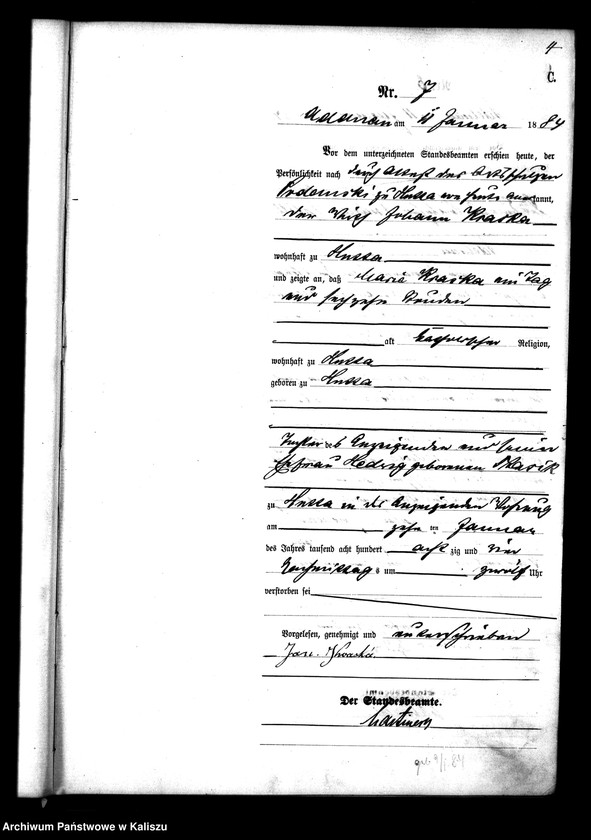 4
C.
Nr. 7
Adelnau am 11 Januar 1884
Vor dem unterzeichneten Standesbeamten erschien heute, der
Persönlichkeit nach durch Attest des Ortsschulzen
zu Hutta kannt,
der Johann Kraska
wohnhaft zu Hutta
und zeigte an, daß Maria Kraska ein Tag
und sechzehn Stunden
alt katholischer Religion,
wohnhaft zu Hutta
geboren zu Hutta
Tochter des Anzeigenden und seiner
Ehefrau Hedwig geborenen
zu Hutta in des Anzeigenden Wohnung
am zehn ten Januar
des Jahres tausend acht hundert acht zig und vier
Nachmittag s um zwölf Uhr
verstorben sei
Vorgelesen, genehmigt und unterschrieben
Jan Kraska
Der Standesbeamte.
Archiwum Państwowe w Kaliszu